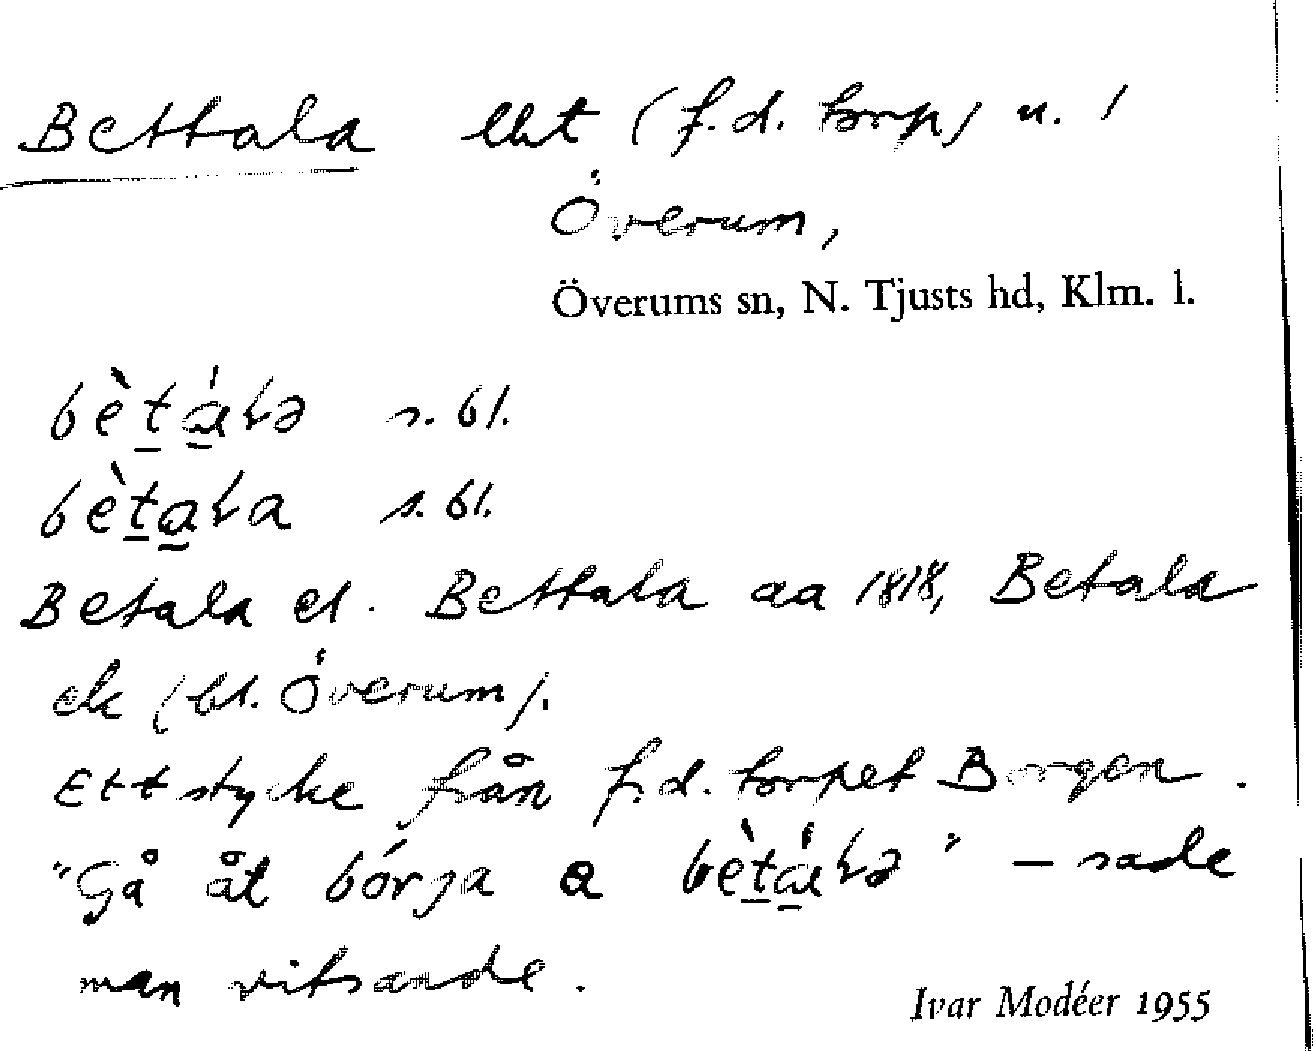 Bettala lht (f.d. torp) u. /
Överum,
Överums sn, N. Tjusts hd, Klm. l.
bètálə s. bl.
bètala s. bl.
Betala el. Bettala aa 1818, Betala
ek (bl. Överum).
Ett stycke från f.d. torpet Borgen.
"Gå åt bórja a bètálə" – sade
man vitsande.
Ivar Modéer 1955